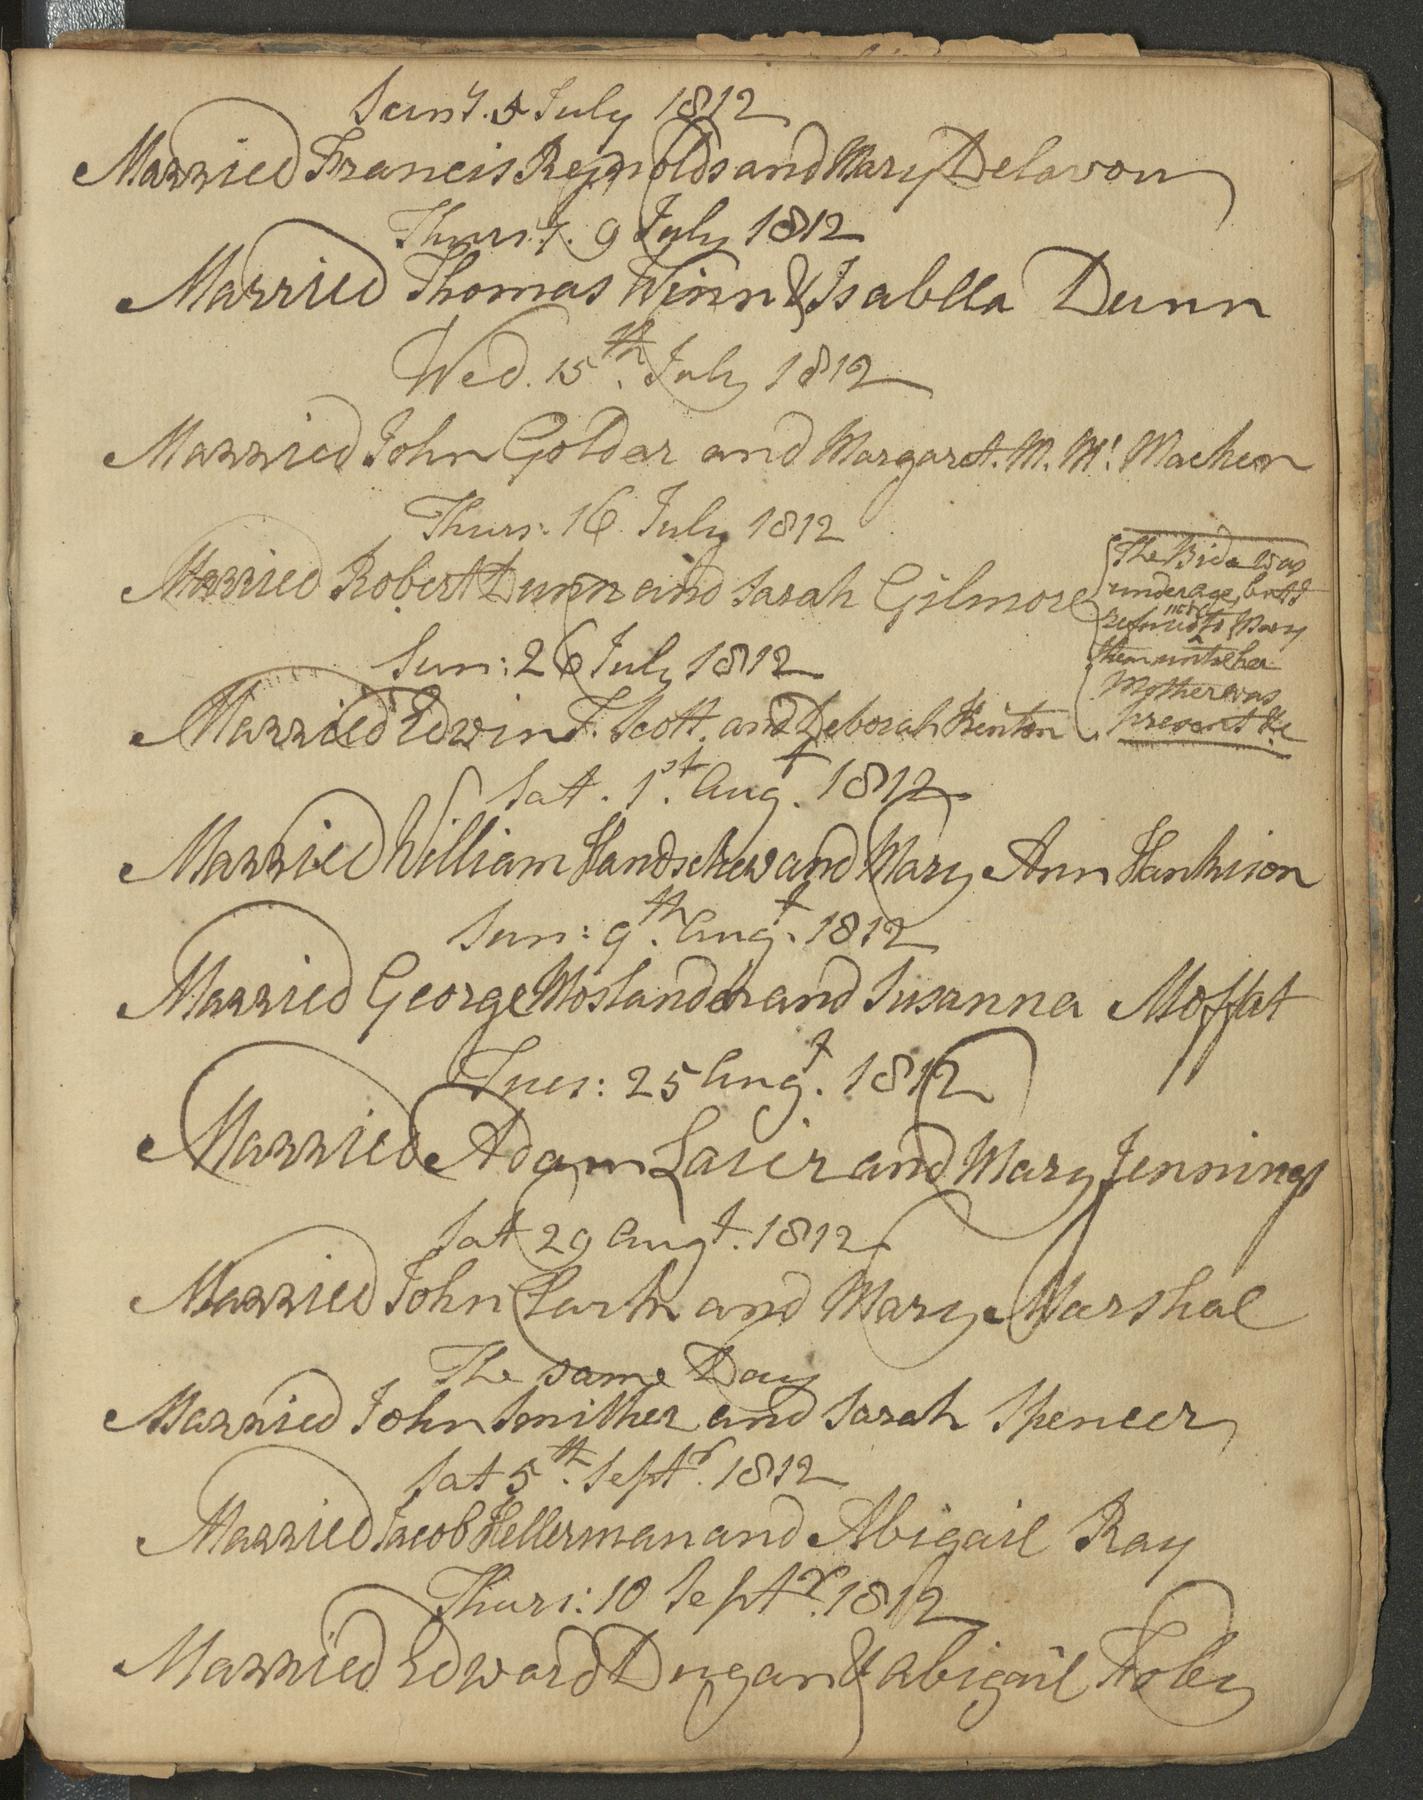 Suny. 5 July 1812
Married Francis Reynolds and Mary Delavou
Thursy. 9 July 1812
Married Thomas Winn & Isablla Dunn
Wed. 15th. July 1812
Married John Golder and Margaret. M. Mc. Macken
Thurs: 16 July 1812
Married Robert Dunn and Sarah Gilmore
The Bride was
underage, but I
refused to Mary
them until her
Mother was
present &c
Sun: 26 July 1812
Married Edwin F. Scott. and Deborah Kenton
Sat. 1st. Augt. 1812
Married William Handschew and Mary Ann Hankison
Sun: 9th. Augt. 1812
Married George Moslander and Susanna Moffat
Tues: 25 Augt. 1812
Married Adam Laseir and Mary Jennings
Sat 29 Augt. 1812
Married John and Mary Marshal
The same Day
Married John Smither and Sarah Spencer
Sat 5th. Septr. 1812
Married Jacob Hellerman and Abigail Ray
Thurs: 10 Septr. 1812
Married Edward Dugan & Abigail Foley